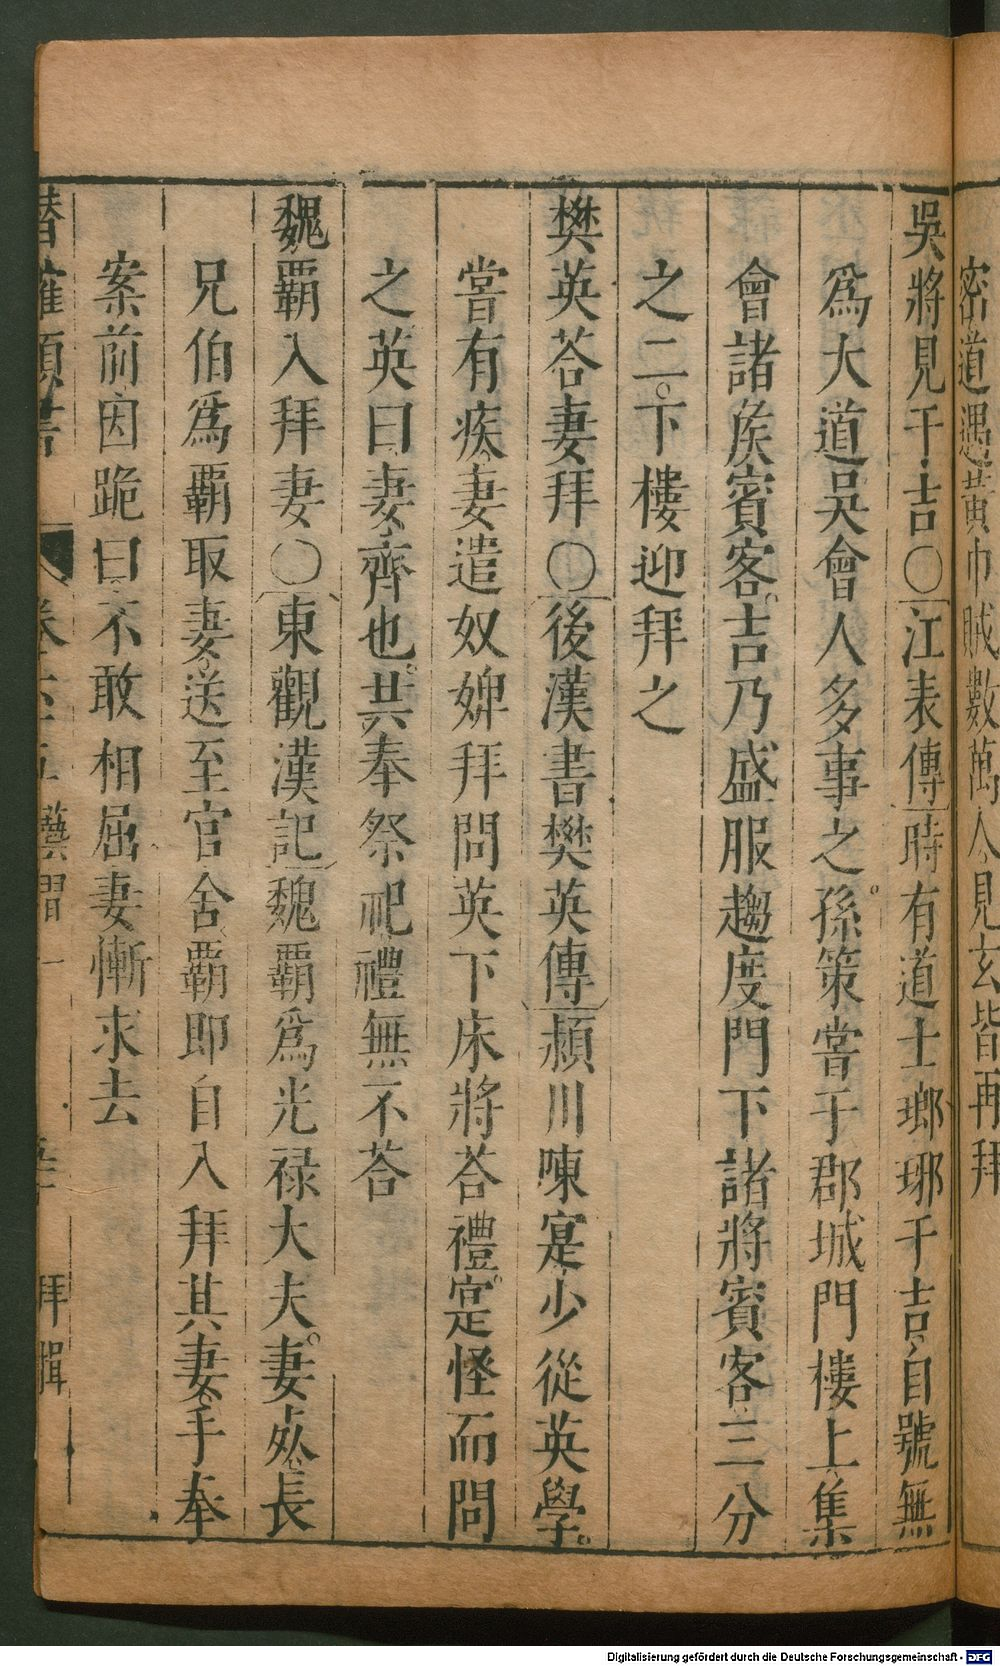 密道遇黄巾賊數萬人見玄皆再拜
吳將見干吉〇江表傳時有道士瑯琊干吉自號無
爲大道吳會人多事之孫策嘗于郡城門樓上集
會諸矦賓客吉乃盛服趨度門下諸將賓客三分
之二下樓迎拜之
樊英荅妻拜〇後漢書樊英傳潁川陳寔少從英學
嘗有疾妻遣奴婢拜問英下床將荅禮寔怪而問
之英曰妻齊也共奉祭祀禮無不荅
魏霸入拜妻〇東觀漢記魏霸爲光禄大夫妻死長
兄伯爲霸取妻送至官舍霸即自入拜其妻手奉
案前因跪曰不敢相屈妻慚求去
潛確類書
卷六十五 藝習一
拜揖
Digitalisierung gefördert durch die Deutsche Forschungsgemeinschaft - DFG